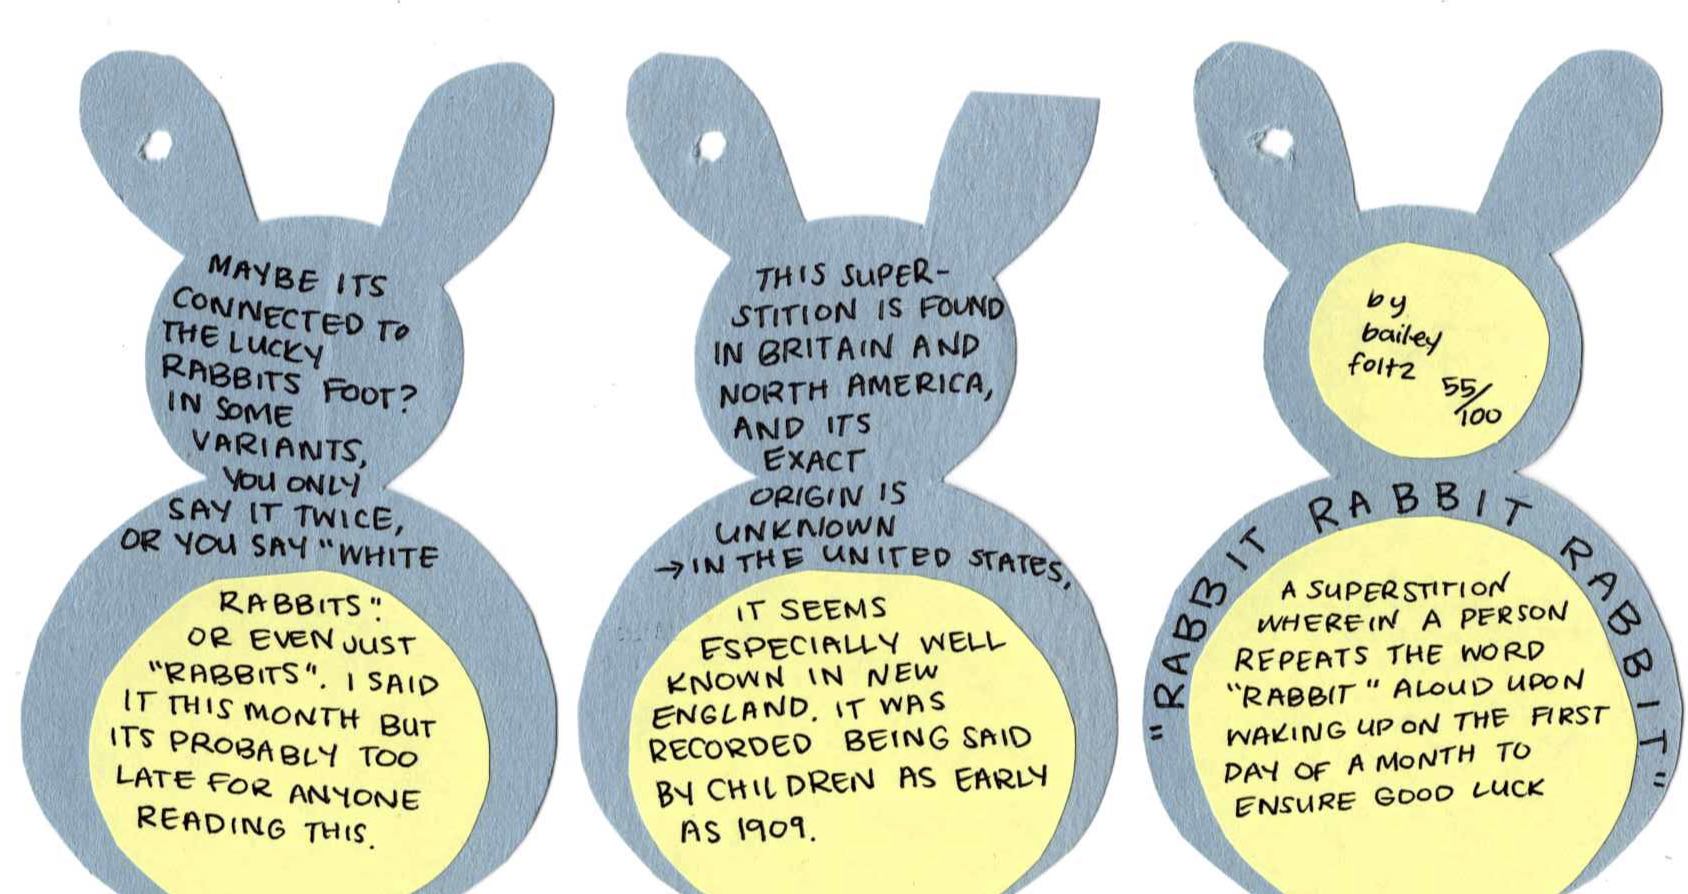 MAYBE ITS
CONNECTED TO
THE LUCKY
RABBITS FOOT?
IN SOME
VARIANTS,
YOU ONLY
SAY IT TWICE,
OR YOU SAY "WHITE
RABBITS".
OR EVEN JUST
"RABBITS". I SAID
IT THIS MONTH BUT
ITS PROBABLY TOO
LATE FOR ANYONE
READING THIS.
THIS SUPER-
STITION IS FOUND
IN BRITAIN AND
NORTH AMERICA,
AND ITS
EXACT
ORIGIN IS
UNKNOWN
→IN THE UNITED STATES,
IT SEEMS
ESPECIALLY WELL
KNOWN IN NEW
ENGLAND. IT WAS
RECORDED BEING SAID
BY CHILDREN AS EARLY
AS 1909.
by
bailey
foltz
55/100
"RABBIT RABBIT RABBIT"
A SUPERSTITION
WHEREIN A PERSON
REPEATS THE WORD
"RABBIT" ALOUD UPON
WAKING UP ON THE FIRST
DAY OF A MONTH TO
ENSURE GOOD LUCK